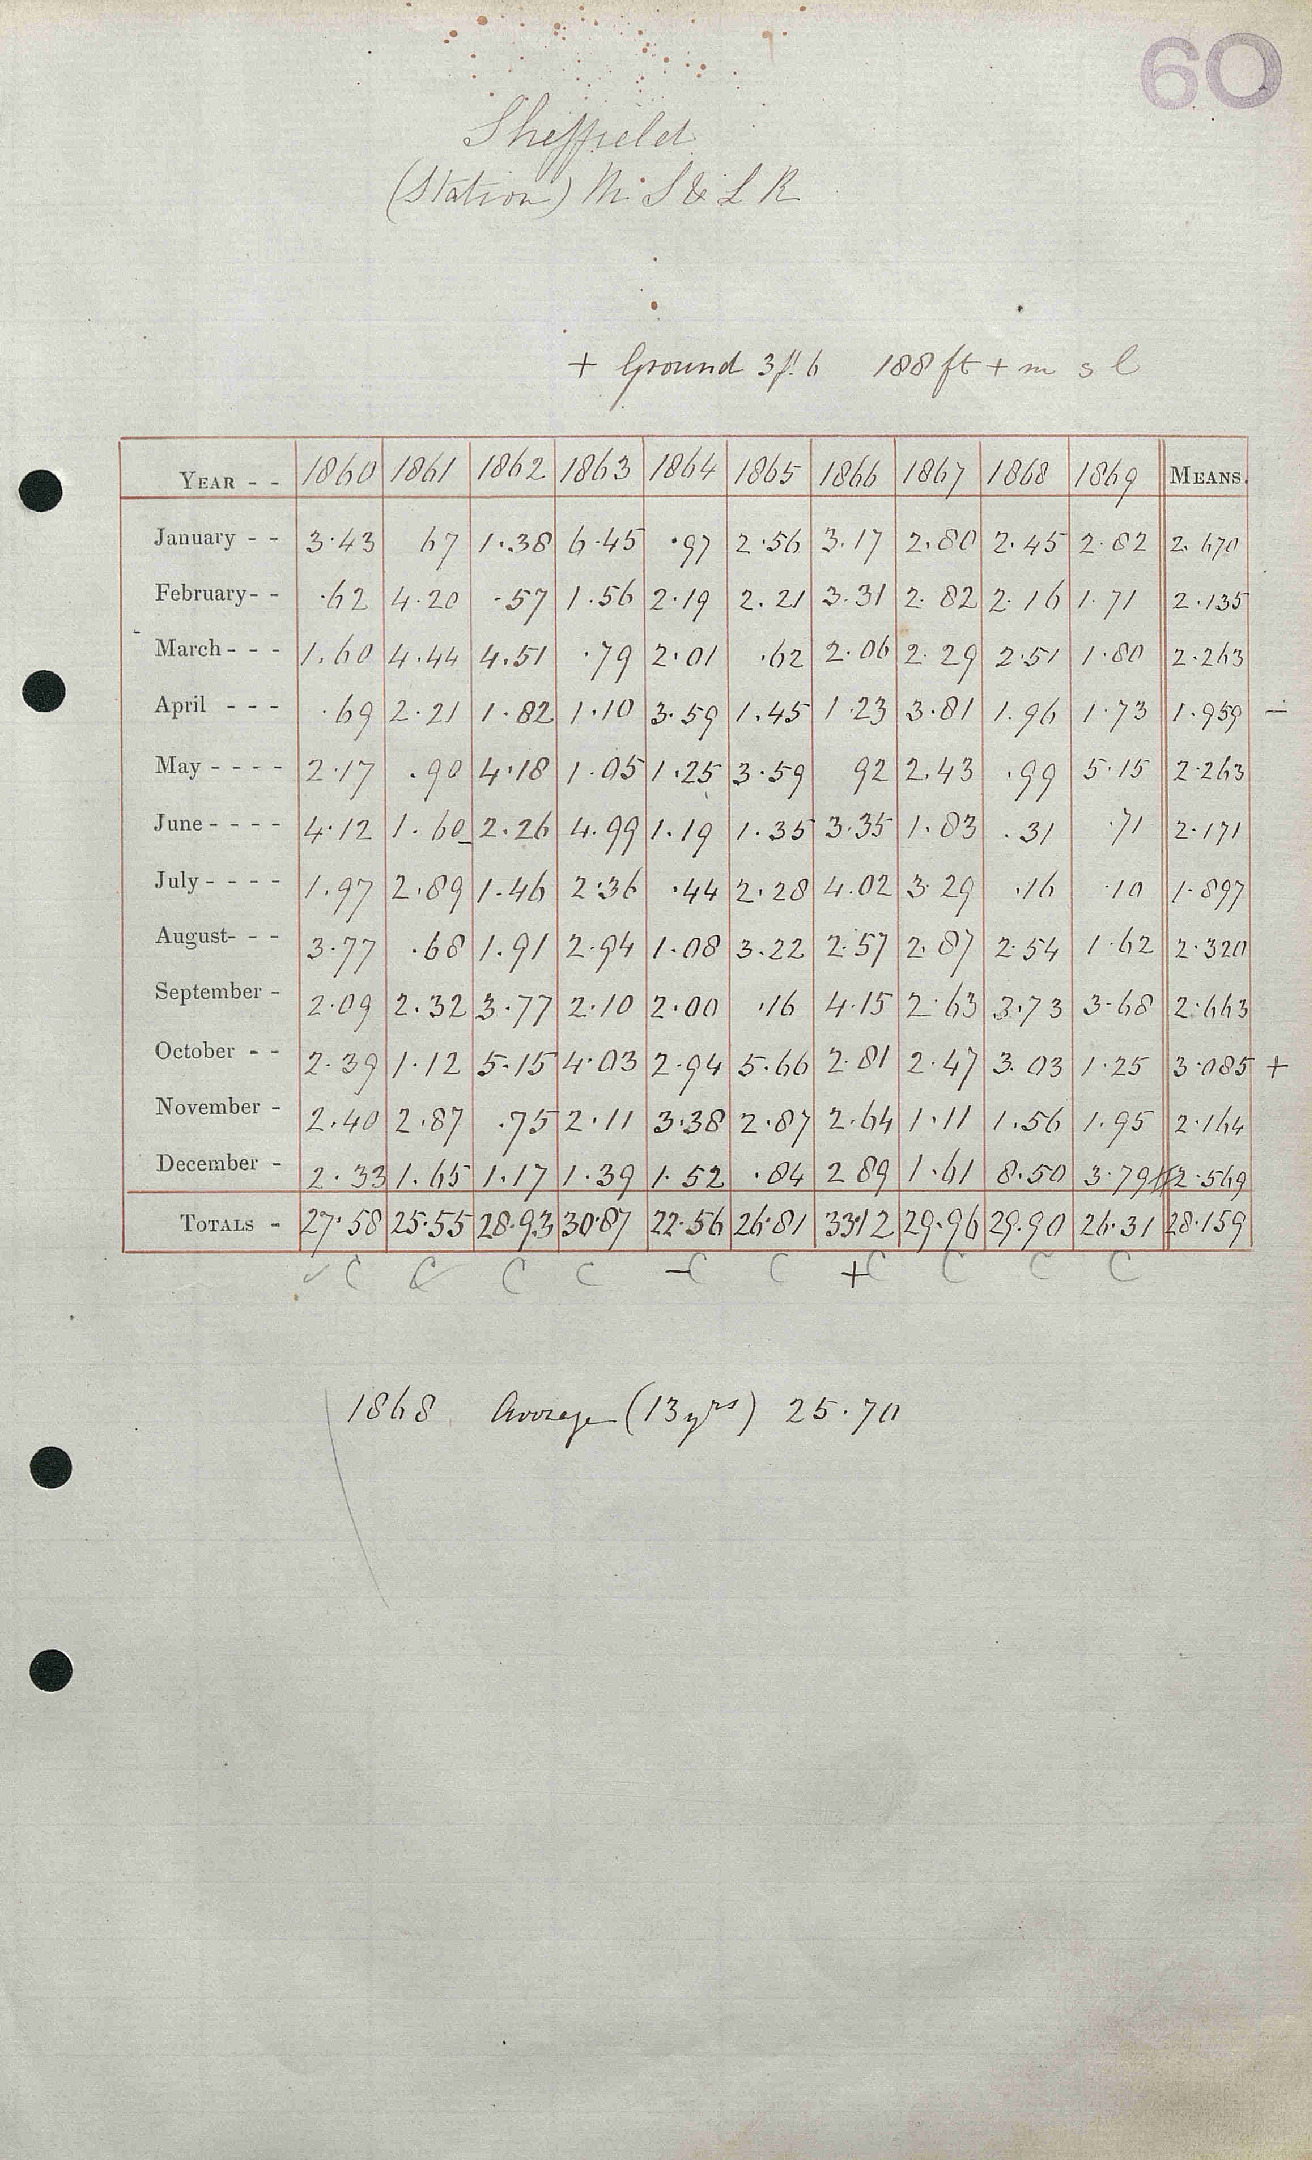 60
Sheffield
(Station) M. S & L R
+ Ground 3ft 6 188 ft + m s l
YEAR - - 1860 1861 1862 1863 1864 1865 1866 1867 1868 1869 MEANS.
January - - 3.43 67 1.38 6.45 .97 2.56 3.17 2.80 2.45 2.82 2.670
February - - .62 4.20 .57 1.56 2.19 2.21 3.31 2.82 2.16 1.71 2.135
March - - - 1.60 4.44 4.51 .79 2.01 .62 2.06 2.29 2.51 1.80 2.263
April - - - .69 2.21 1.82 1.10 3.59 1.45 1.23 3.81 1.96 1.73 1.959 -
May - - - - 2.17 .90 4.18 1.05 1.25 3.59 92 2.43 .99 5.15 2.263
June - - - - 4.12 1.60 2.26 4.99 1.19 1.35 3.35 1.83 .31 .71 2.171
July - - - - 1.97 2.89 1.46 2.36 .44 2.28 4.02 3.29 .16 .10 1.897
August - - - 3.77 .68 1.91 2.94 1.08 3.22 2.57 2.87 2.54 1.62 2.320
September - 2.09 2.32 3.77 2.10 2.00 .16 4.15 2.63 3.73 3.68 2.663
October - - 2.39 1.12 5.15 4.03 2.94 5.66 2.81 2.47 3.03 1.25 3.085 +
November - 2.40 2.87 .75 2.11 3.38 2.87 2.64 1.11 1.56 1.95 2.164
December - 2.33 1.65 1.17 1.39 1.52 .84 2 89 1.61 8.50 3.79 2.569
TOTALS - 27.58 25.55 28.93 30.87 22.56 26.81 33.12 29.96 29.90 26.31 28.159
C C C C - C C + C C C C
1868 Average (13 yrs) 25.70